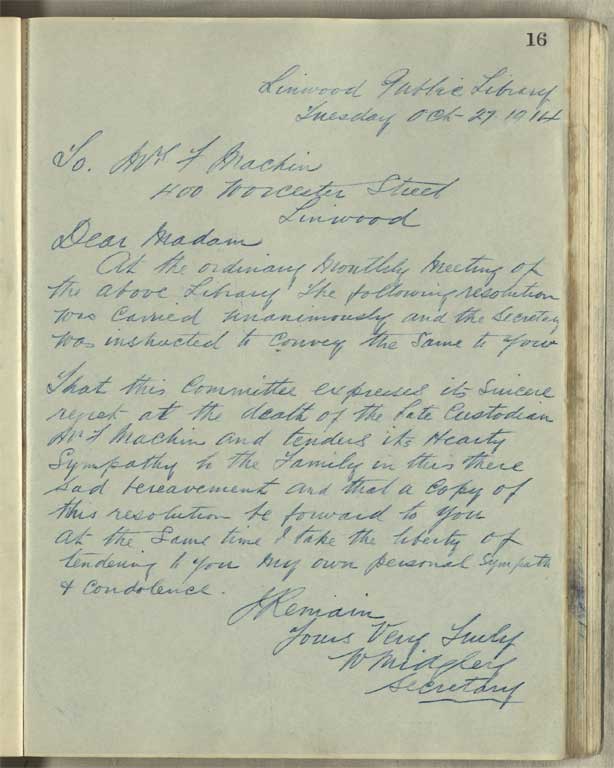 16
Linwood Public Library
Tuesday Oct 27. 1914
To. Mrs F Machin
400 Worcester Street
Linwood
Dear Madam
At the ordinary Monthly Meeting of
the above Library The following resolution
was Carried unanimously and the Secretary
was instructed to Convey the Same to your
That this Committee expresses its Sincere
regret at the death of the late Custodian
Mr F Machin and tenders its Hearty
Sympathy to the Family in this there
sad bereavement and that a Copy of
this resolution be forward to you
at the Same time I take the liberty of
tendering to you my own personal Sympath
& Condolence.
I Remain
Yours Very Truly
W Midgley
Secretary